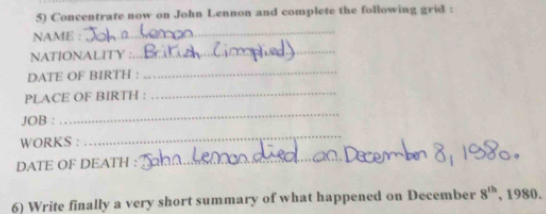 5) Concentrate now on John Lennon and complete the following grid :
NAME : Joh n Lemon
NATIONALITY : British (implied)
DATE OF BIRTH :
PLACE OF BIRTH :
JOB :
WORKS :
DATE OF DEATH : John Lemon died on December 8, 1980.
6) Write finally a very short summary of what happened on December 8th, 1980.